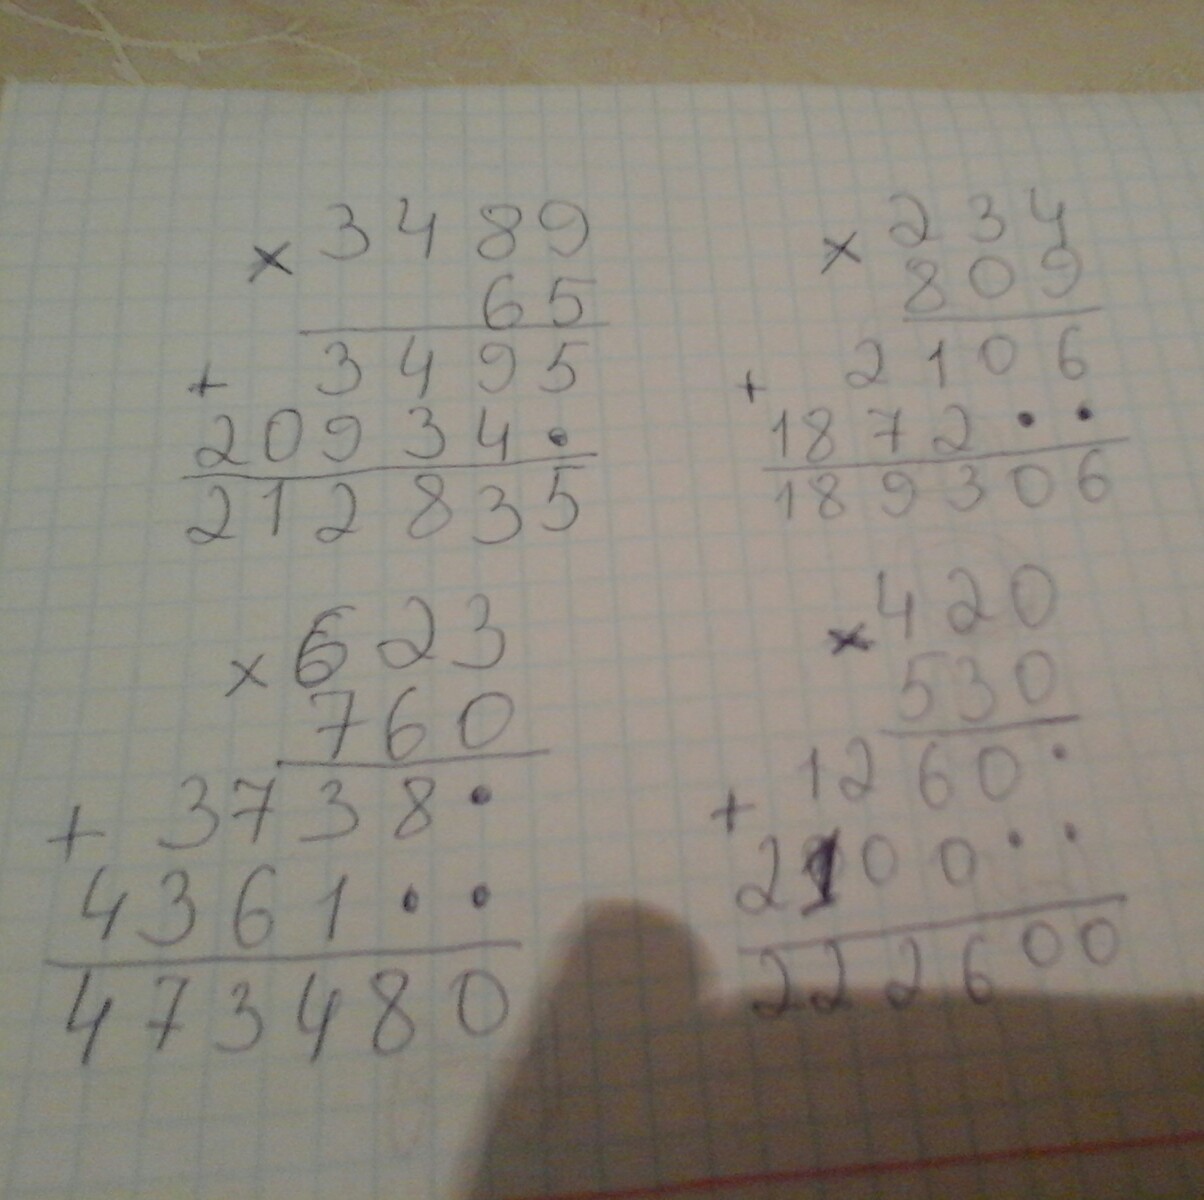 × 3489
65
+ 3495
20934•
212835
× 234
809
+ 2106
1872••
189306
× 623
760
+ 3738•
4361••
473480
× 420
530
+ 1260•
2100••
222600